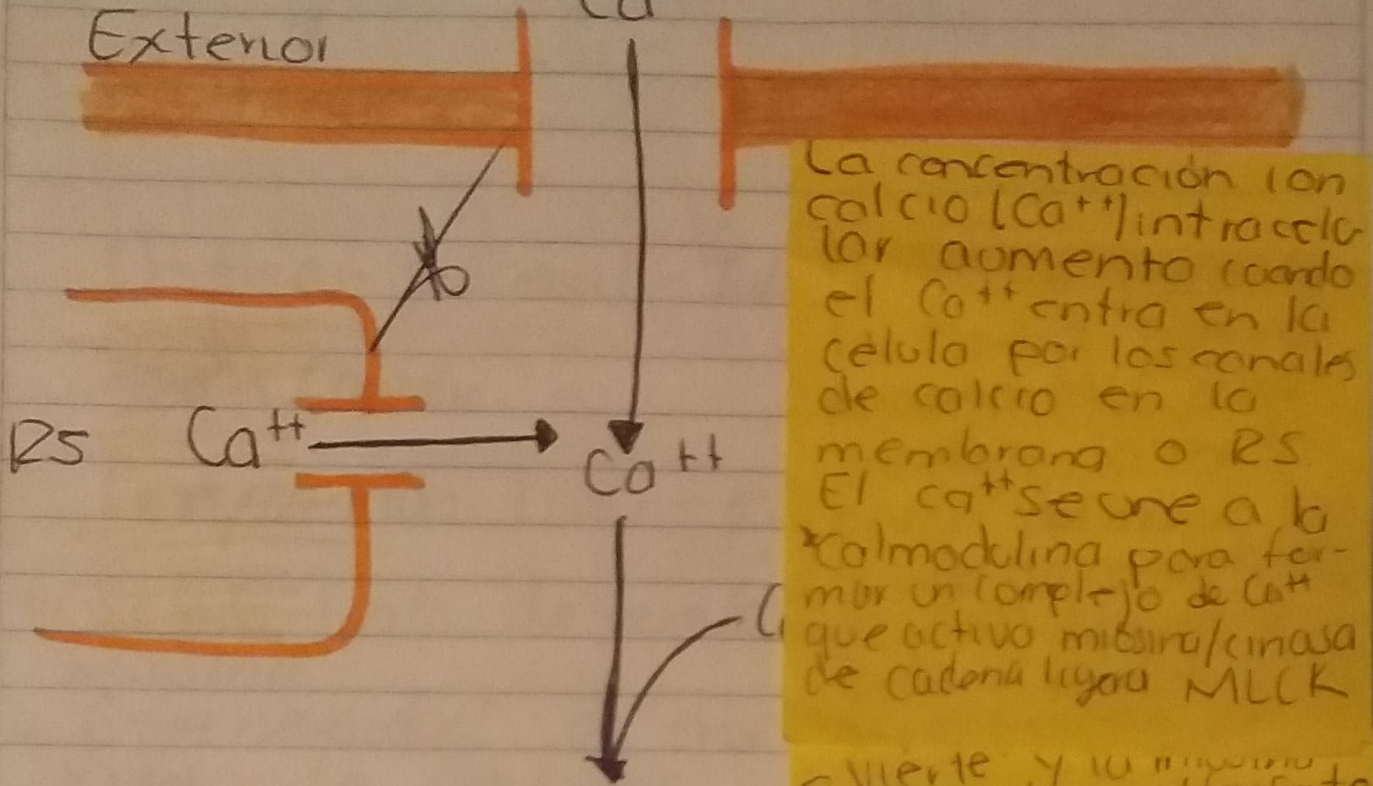 Ca
Exterior
RS
Ca++
Ca++
C
La concentración ion
calcio (Ca++) intracelu
lar aumento cuando
el Ca++ entra en la
célula por los canales
de calcio en la
membrana o RS
El Ca++ se une a la
*calmodulina para for-
mar un complejo de Ca++
que activa miosina/cinasa
de cadena ligera MLCK
vierte y la